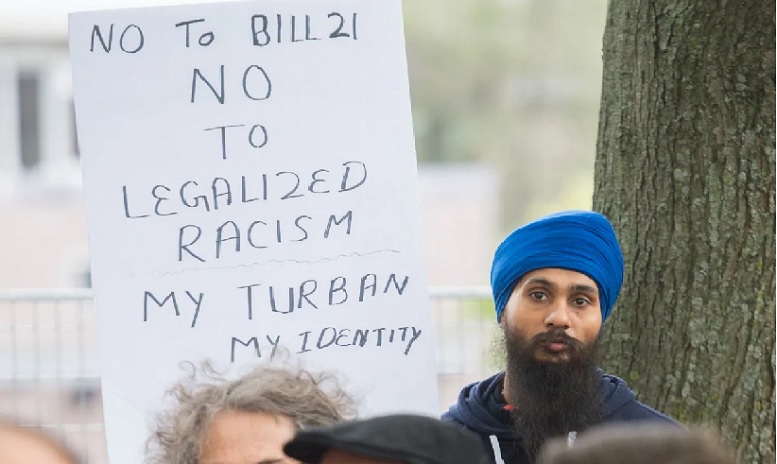 NO TO BILL 21
NO
TO
LEGALIZED
RACISM
MY TURBAN
MY IDENTITY